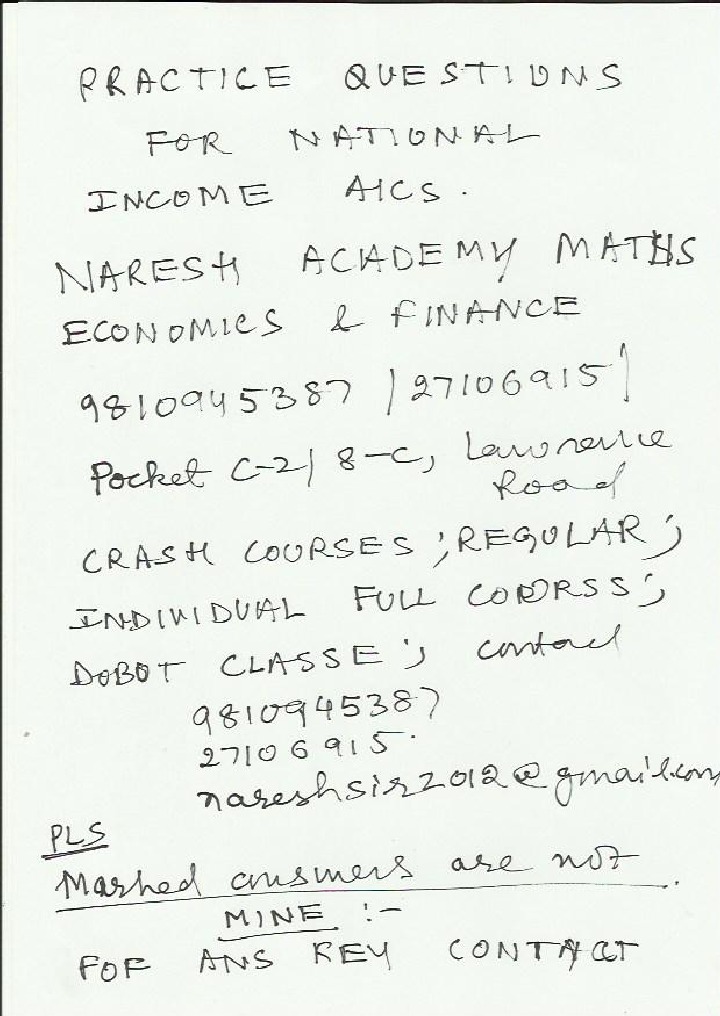 PRACTICE QUESTIONS
FOR NATIONAL
INCOME A/CS.
NARESH ACADEMY MATHS
ECONOMICS & FINANCE
9810945387 / 27106915 /
Pocket C-2/ 8-C, Lawrence
Road
CRASH COURSES ; REGULAR ;
INDIVIDUAL FULL COORSS ;
DOBOT CLASSE ; contact
9810945387
27106915.
nareshsir2012@gmail.com
PLS
Marked answers are not
MINE :-
FOR ANS KEY CONTACT